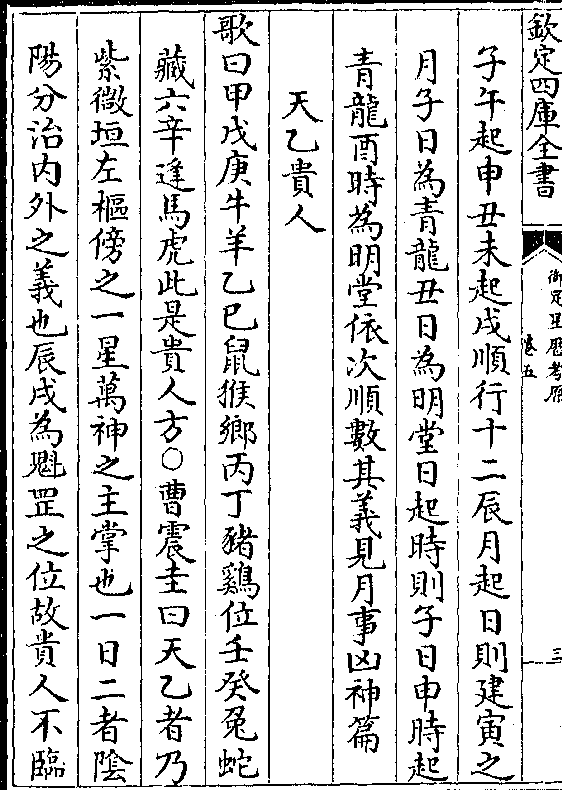 欽定四庫全書
御定星歷考原
卷五
三
子午起申丑未起戌順行十二辰月起日則建寅之
月子日為青龍丑日為明堂日起時則子日申時起
青龍酉時為明堂依次順數其義見月事凶神篇
天乙貴人
歌曰甲戊庚牛羊乙巳鼠猴鄉丙丁豬鷄位壬癸兔蛇
藏六辛逢馬虎此是貴人方○曹震圭曰天乙者乃
紫微垣左樞傍之一星萬神之主掌也一日二者陰
陽分治内外之義也辰戌為魁罡之位故貴人不臨